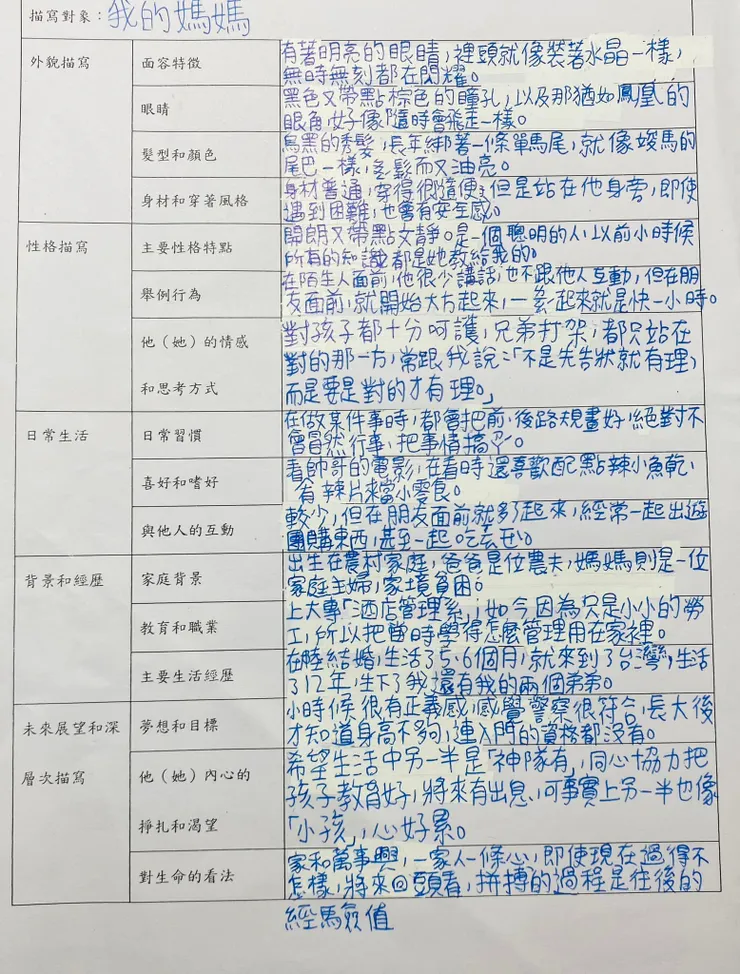 描寫對象：我的媽媽
外貌描寫
面容特徵
有著明亮的眼睛，裡頭就像裝著水晶一樣，
無時無刻都在閃耀。
眼睛
黑色又帶點棕色的瞳孔，以及那猶如鳳凰的
眼角，好像隨時會飛走一樣。
髮型和顏色
烏黑的秀髮，長年綁著一條單馬尾，就像
的
尾巴一樣，多髮而又油亮。
身材和穿著風格
身材普通，穿得很隨便，但是站在他身旁，即使
遇到困難，也會有安全感。
性格描寫
主要性格特點
開朗又帶點文靜。是一個聰明的人，以前小時候
所有的知識都是她教給我的。
舉例行為
在陌生人面前，他很少講話，也不跟他人互動，但在朋
友面前，就開始大方起來，一
起來就是快一小時。
他（她）的情感
和思考方式
對孩子都十分呵護，兄弟打架，都只站在
對的那一方，常跟我說：「不是先告狀就有理，
而是要是對的才有理。」
日常生活
日常習慣
在做某件事時，都會把前，後路規畫好，絕對不
會冒然行事，把事情搞
喜好和嗜好
看帥哥的電影，在看時還喜歡配點辣小魚乾，
有辣片來當小零食。
與他人的互動
較少，但在朋友面前就多了起來，經常一起出遊
團購東西，甚至一起吃
背景和經歷
家庭背景
出生在農村家庭，爸爸是位農夫，媽媽則是一位
家庭主婦，家境貧困。
教育和職業
上大專「酒店管理系」；如今因為只是小小的勞
工，所以把當時學得怎麼管理用在家裡。
主要生活經歷
在陸結婚，生活了5、6個月，就來到了台灣，生活
了12年，生下了我還有我的兩個弟弟。
未來展望和深
層次描寫
夢想和目標
小時候很有正義感，感覺警察很符合，長大後
才知道身高不夠，連入門的資格都沒有。
他（她）內心的
掙扎和渴望
希望生活中另一半是「神隊有」，同心協力把
孩子教育好，將來有出息，可事實上另一半也像
「小孩」，心好累。
對生命的看法
家和萬事興，一家人一條心，即使現在過得不
怎樣，將來回頭看，拼搏的過程是往後的
經驗值